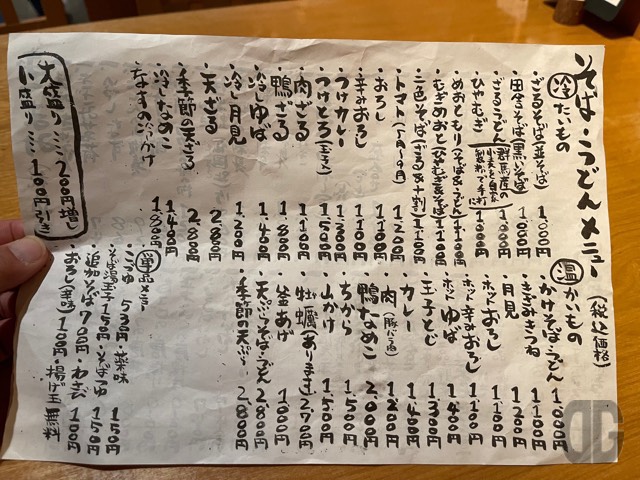 そば・うどんメニュー
(税込価格)
冷たいもの
・ざるそば(並そば) 1.000円
・田舎そば(黒いそば) 1.000円
・ざるうどん 1.000円
・ひやむぎ 1.000円
群馬産の
小麦を自家
製粉で手打
・めおともり(そば&うどん) 1.100円
・むぎめおと(ひやむぎ&そば) 1.100円
・二色そば(ざる&十割) 1.100円
・トマト(7月〜9月) 1.200円
・おろし 1.100円
・辛みおろし 1.100円
・つけカレー 1.300円
・つけとろ(玉子入) 1.500円
・肉ざる 1.100円
・鴨ざる 1.800円
・冷しゆば
・冷し月見 1.200円
・天ざる 2.800円
・季節の天ざる 2.800円
・冷しなめこ 1.400円
・なすのぶっかけ 1.800円
大盛りミミ 200円増し
小盛りミミ 100円引き
温かいもの
・かけそば・うどん 1.000円
・きざみきつね 1.100円
・月見 1.200円
・ホットおろし 1.100円
・ホット辛みおろし 1.100円
・ホットゆば 1.400円
・玉子とじ 1.300円
・カレー 1.400円
・肉(豚バラ肉) 1.200円
・鴨なめこ 2.000円
・ちから 1.500円
・山かけ 1.500円
・牡蠣(あります)
・釜あげ 1.000円
・天ぷらそば・うどん 2.800円
・季節の天ぷら 2.800円
単品メニュー
・そば湯玉子 150円
・そばつゆ 150円
・薬味 150円
・追加そば 700円
・わさび 100円
・おろし(辛味) 100円
・揚げ玉 無料
DG